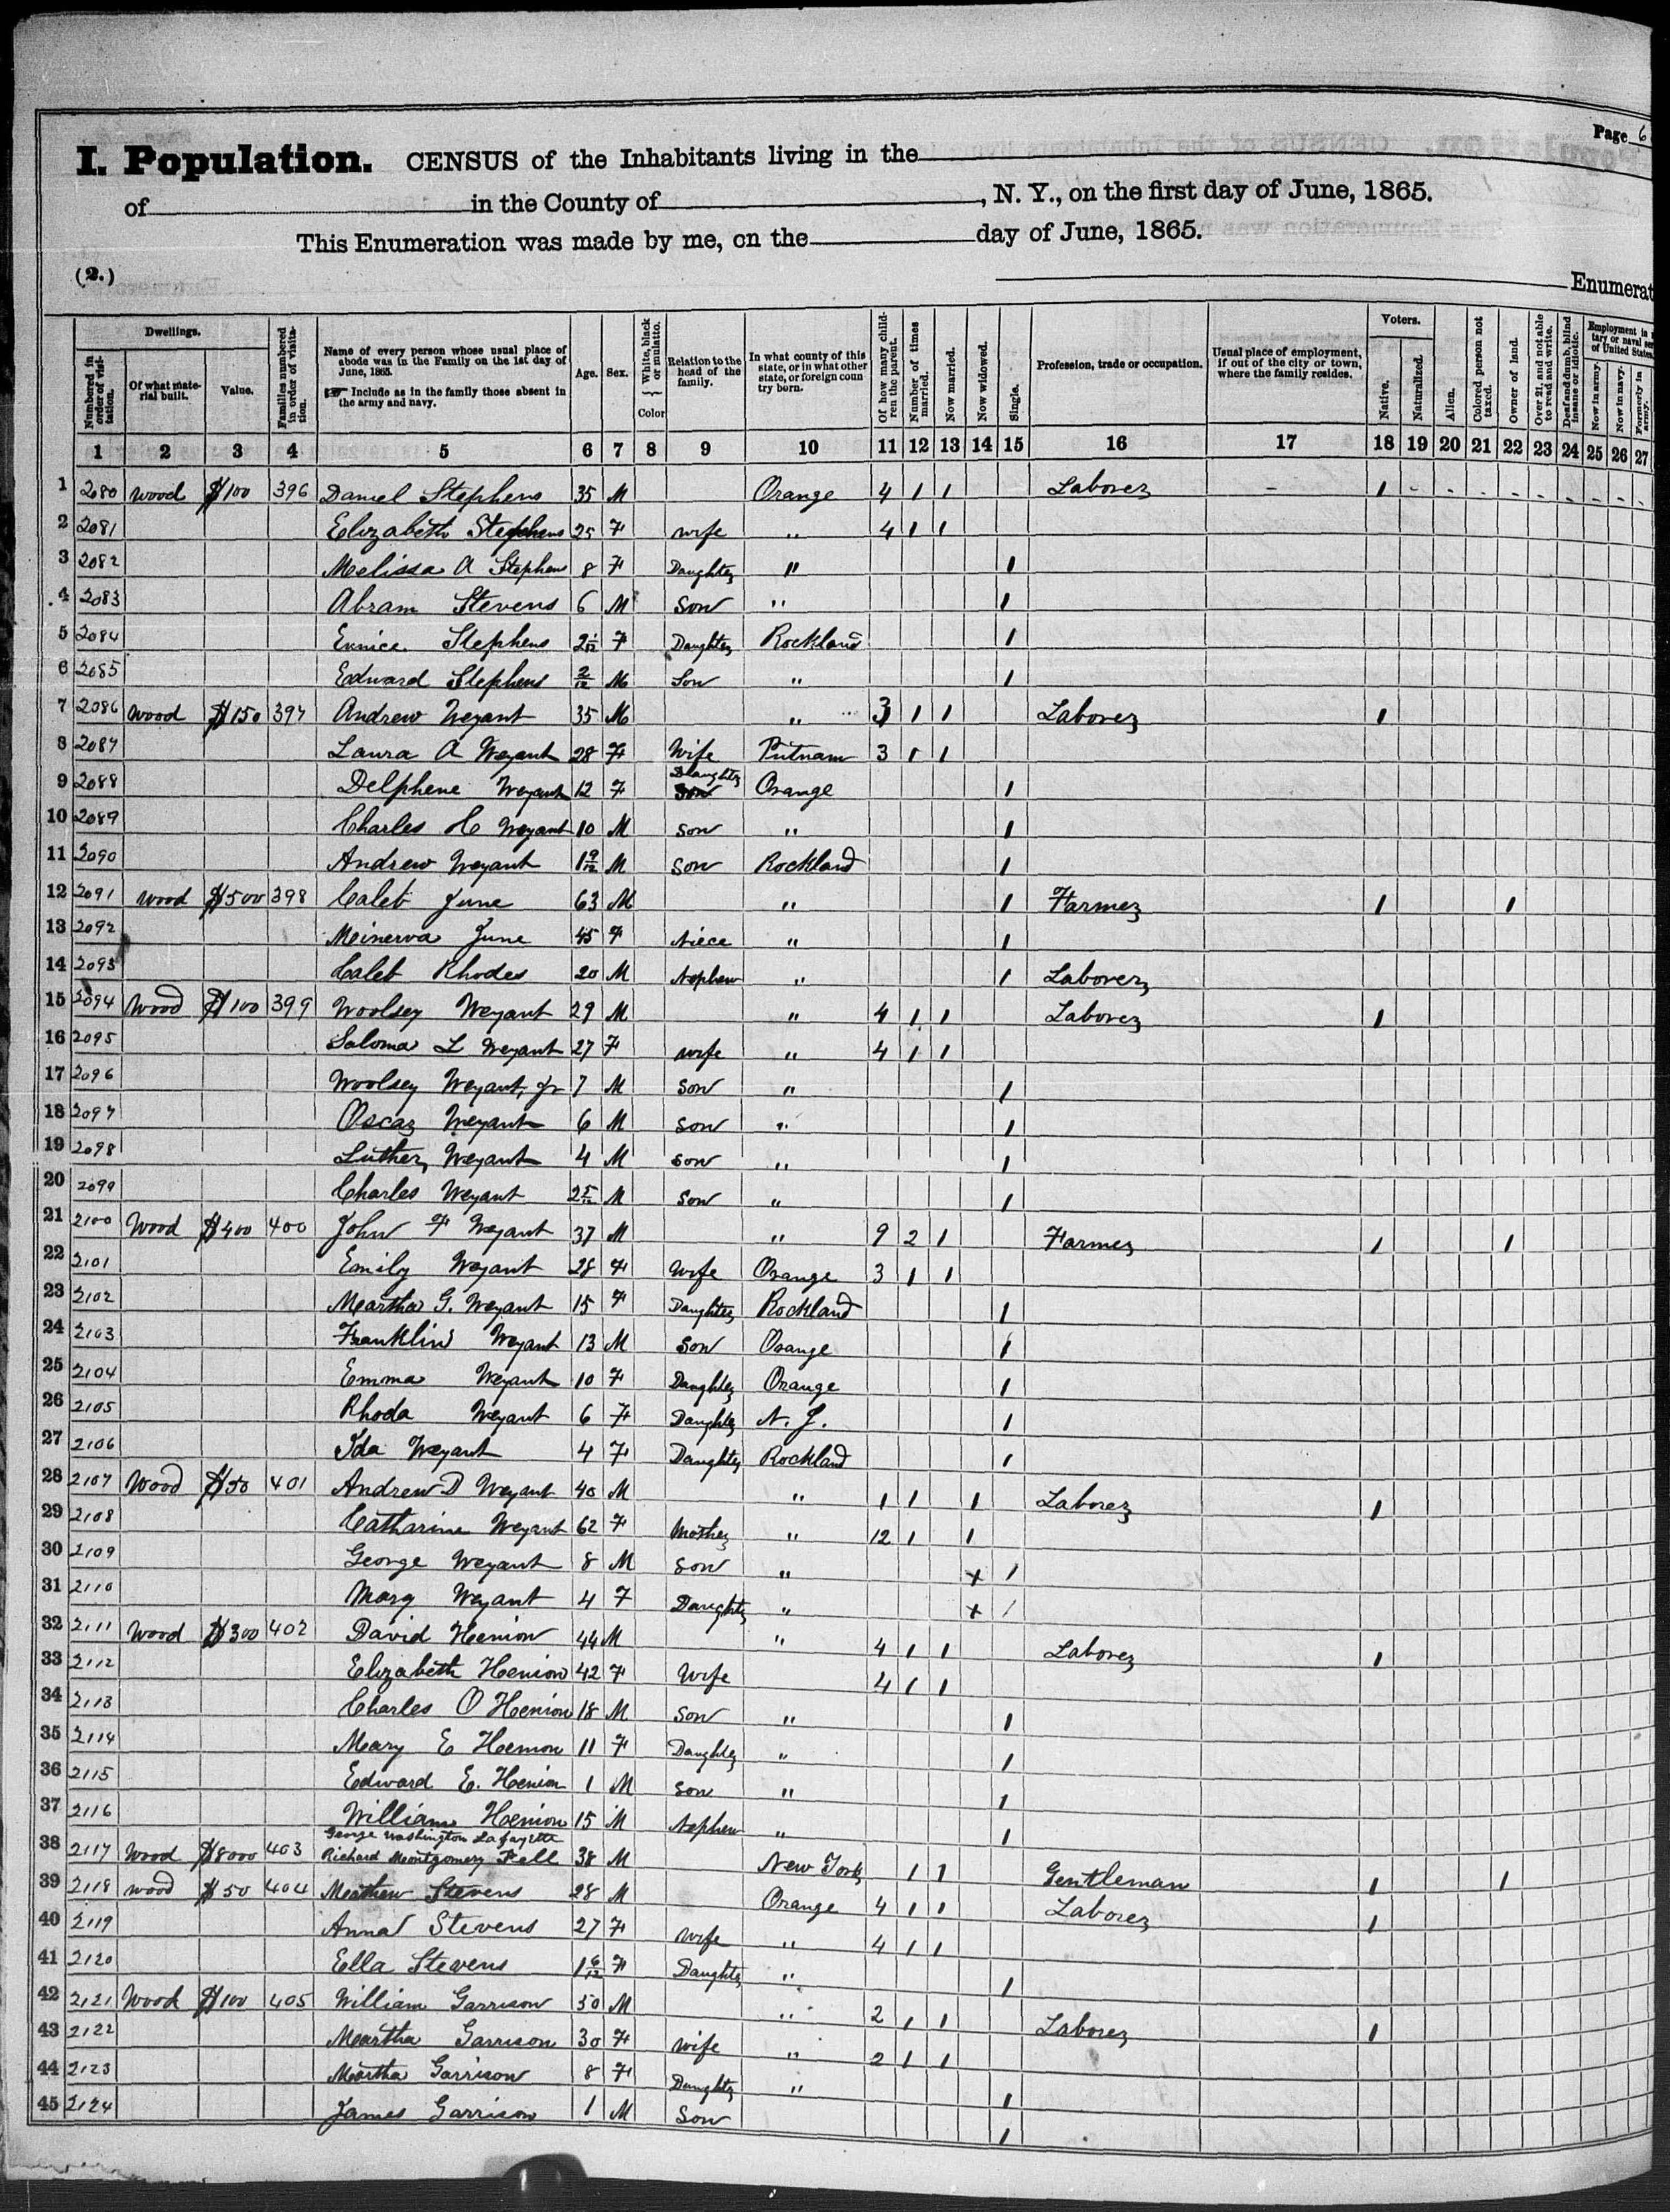 Page 6
I. Population. CENSUS of the Inhabitants living in the
of in the County of , N. Y., on the first day of June, 1865.
This Enumeration was made by me, on the day of June, 1865.
(2.) Enumerat
Numbered in order of visitation.
Dwellings.
Of what material built.
Value.
Families numbered in order of visitation.
Name of every person whose usual place of abode was in the Family on the 1st day of June, 1865.
Include as in the family those absent in the army and navy.
Age.
Sex.
White, black or mulatto.
Color
Relation to the head of the family.
In what county of this state, or in what other state, or foreign coun try born.
Of how many children the parent.
Number of times married.
Now married.
Now widowed.
Single.
Profession, trade or occupation.
Usual place of employment, if out of the city or town, where the family resides.
Voters.
Native.
Naturalized.
Alien.
Colored person not taxed.
Owner of land.
Over 21, and not able to read and write.
Deaf and dumb, blind insane or idiotic.
Employment in tary or naval ser of United States
Now in army.
Now in navy.
Formerly in army.
1 2 3 4 5 6 7 8 9 10 11 12 13 14 15 16 17 18 19 20 21 22 23 24 25 26 27
1 2080 wood $100 396 Daniel Stephens 35 M Orange 4 1 1 Laborer - 1 - - - - - - - - -
2 2081 Elizabeth Stephens 25 F wife " 4 1 1
3 2082 Melissa A Stephens 8 F Daughter " 1
4 2083 Abram Stevens 6 M son " 1
5 2084 Eunice Stephens 2 1/12 F Daughter Rockland 1
6 2085 Edward Stephens 2/12 M Son " 1
7 2086 wood $150 397 Andrew Weyant 35 M " 3 1 1 Laborer 1
8 2087 Laura A Weyant 28 F Wife Putnam 3 1 1
9 2088 Delphene Weyant 12 F Daughter Son Orange 1
10 2089 Charles H Weyant 10 M son " 1
11 2090 Andrew Weyant 1 9/12 M son Rockland 1
12 2091 wood $500 398 Caleb June 63 M " 1 Farmer 1 1
13 2092 Minerva June 45 F Niece " 1
14 2093 Caleb Rhodes 20 M Nephew " 1 Laborer
15 2094 Wood $100 399 Woolsey Weyant 29 M " 4 1 1 Laborer 1
16 2095 Saloma L Weyant 27 F wife " 4 1 1
17 2096 Woolsey Weyant, Jr 7 M son " 1
18 2097 Oscar Weyant 6 M son " 1
19 2098 Luther Weyant 4 M son " 1
20 2099 Charles Weyant 2 5/12 M son " 1
21 2100 Wood $400 400 John F Weyant 37 M " 9 2 1 Farmer 1 1
22 2101 Emily Weyant 28 F wife Orange 3 1 1
23 2102 Martha G. Weyant 15 F Daughter Rockland 1
24 2103 Franklin Weyant 13 M son Orange 1
25 2104 Emma Weyant 10 F Daughter Orange 1
26 2105 Rhoda Weyant 6 F Daughter N. J. 1
27 2106 Ida Weyant 4 F Daughter Rockland 1
28 2107 Wood $50 401 Andrew D Weyant 40 M " 1 1 1 Laborer 1
29 2108 Catharine Weyant 62 F Mother " 12 1 1
30 2109 George Weyant 8 M son " x 1
31 2110 Mary Weyant 4 F Daughter " x 1
32 2111 Wood $300 402 David Henion 44 M " 4 1 1 Laborer 1
33 2112 Elizabeth Henion 42 F Wife 4 1 1
34 2113 Charles O Henion 18 M son " 1
35 2114 Mary E Henion 11 F Daughter " 1
36 2115 Edward E. Henion 1 M son " 1
37 2116 William Henion 15 M Nephew " 1
George Washington Lafayette
38 2117 Wood $8000 403 Richard Montgomery Pell 38 M New York 1 1 Gentleman 1 1
39 2118 wood $50 404 Mathew Stevens 28 M Orange 4 1 1 Laborer 1
40 2119 Anna Stevens 27 F wife " 4 1 1
41 2120 Ella Stevens 1 6/12 F Daughter " 1
42 2121 Wood $100 405 William Garrison 50 M " 2 1 1 Laborer 1
43 2122 Martha Garrison 30 F wife " 2 1 1
44 2123 Martha Garrison 8 F Daughter " 1
45 2124 James Garrison 1 M Son 1